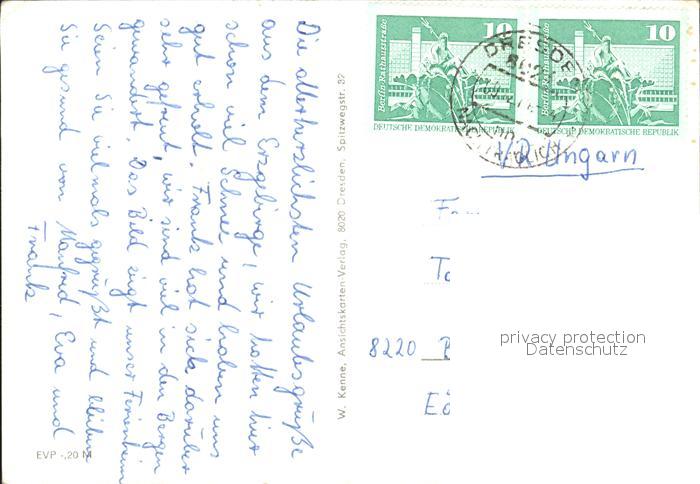 Die allerherzlichsten Urlaubsgrüße
aus dem Erzgebirge, wir hatten hier
schon viel Schnee und haben uns
gut erholt. Frank hat sich darüber
sehr gefreut, wir sind viel in den Bergen
gewandert. Das Bild zeigt unser Ferienheim
Seien Sie vielmals gegrüßt und bleiben
Sie gesund von Manfred, Eva und
Frank
EVP -,20 M
W. Kenne, Ansichtskarten-Verlag, 8020 Dresden, Spitzwegstr. 32
10
Berlin Rathausstraße
DEUTSCHE DEMOKRATISCHE REPUBLIK
10
Berlin Rathausstraße
DEUTSCHE DEMOKRATISCHE REPUBLIK
DRESDEN
VR Ungarn
8220
privacy protection
Datenschutz